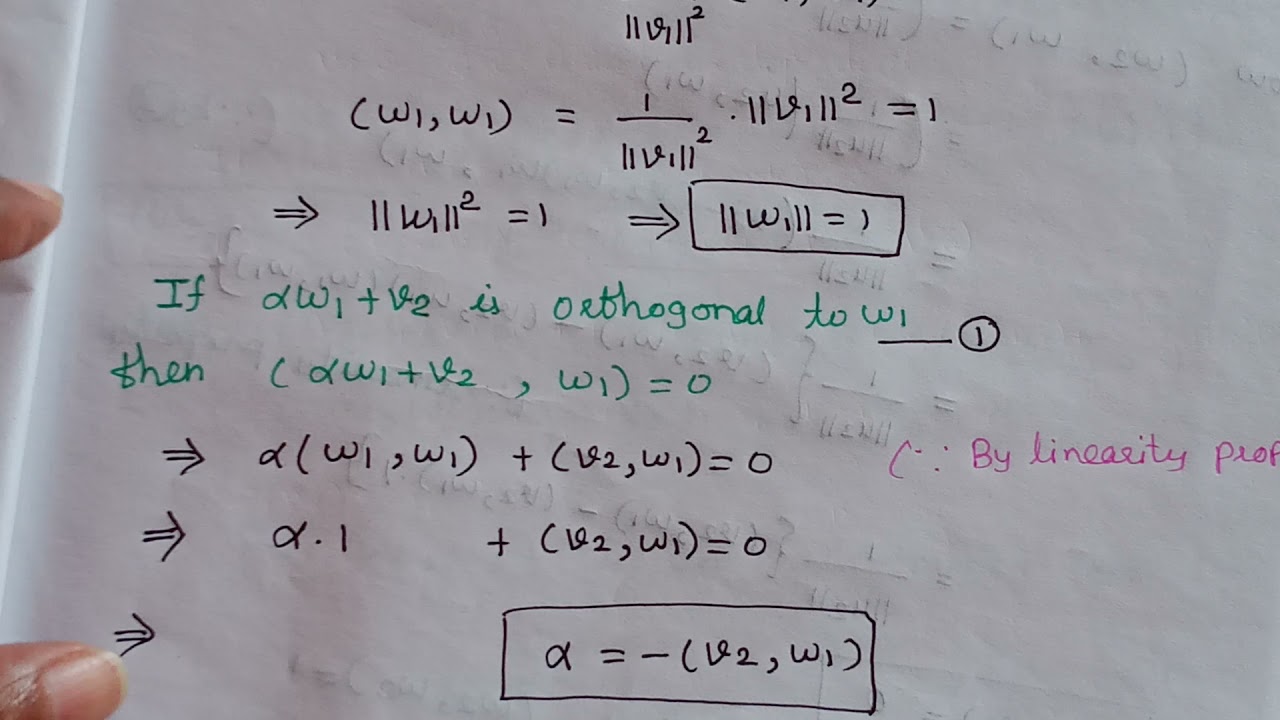 ||v₁||²
(w₁, w₁) = 1/||v₁||² · ||v₁||² = 1
⇒ ||w₁||² = 1 ⇒ ||w₁|| = 1
If αw₁ + v₂ is orthogonal to w₁ —— ①
then (αw₁ + v₂, w₁) = 0
⇒ α(w₁, w₁) + (v₂, w₁) = 0 (∵ By linearity prop
⇒ α . 1 + (v₂, w₁) = 0
⇒ α = -(v₂, w₁)